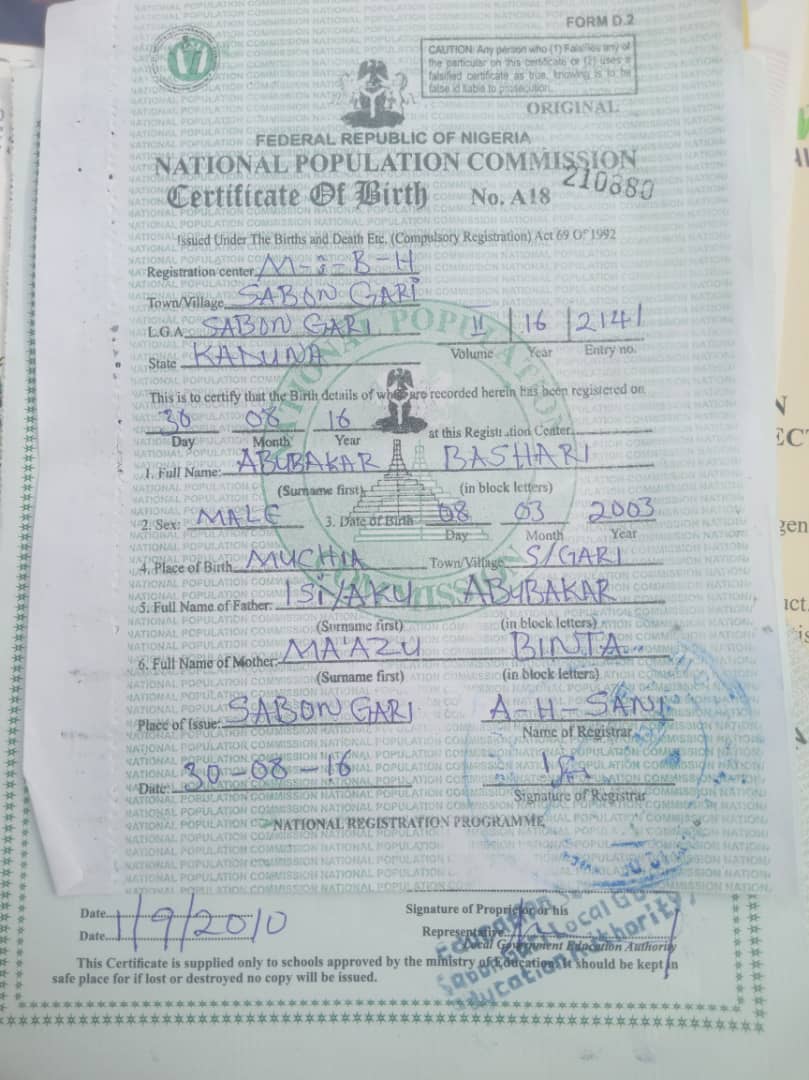 FORM D.2
CAUTION: Any person who (1) Falsifies any of
the particular on this certificate or (2) uses a
falsified certificate as true, knowing is to be
false id liable to prosecution.
ORIGINAL
FEDERAL REPUBLIC OF NIGERIA
NATIONAL POPULATION COMMISSION
Certificate Of Birth No. A18 210880
Issued Under The Births and Death Etc. (Compulsory Registration) Act 69 Of 1992
Registration center M-i-B-H
Town/Village SABON GARI
L.G.A. SABON GARI II 16 2141
State KADUNA Volume Year Entry no.
This is to certify that the Birth details of who are recorded herein has been registered on
30 08 16
Day Month Year at this Registration Center
1. Full Name: ABUBAKAR BASHARI
(Surname first) (in block letters)
2. Sex: MALE 3. Date of Birth 08 03 2003
Day Month Year
4. Place of Birth MUCHIA Town/Village S/GARI
5. Full Name of Father: ISIYAKU ABUBAKAR
(Surname first) (in block letters)
6. Full Name of Mother: MA'AZU BINTA
(Surname first) (in block letters)
Place of Issue: SABON GARI A-H-SANI
Name of Registrar
Date: 30-08-16
Signature of Registrar
NATIONAL REGISTRATION PROGRAMME
Date 1/9/2010 Signature of Proprietor or his
Date Representative
Local Government Education Authority
This Certificate is supplied only to schools approved by the ministry of Education. It should be kept in
safe place for if lost or destroyed no copy will be issued.